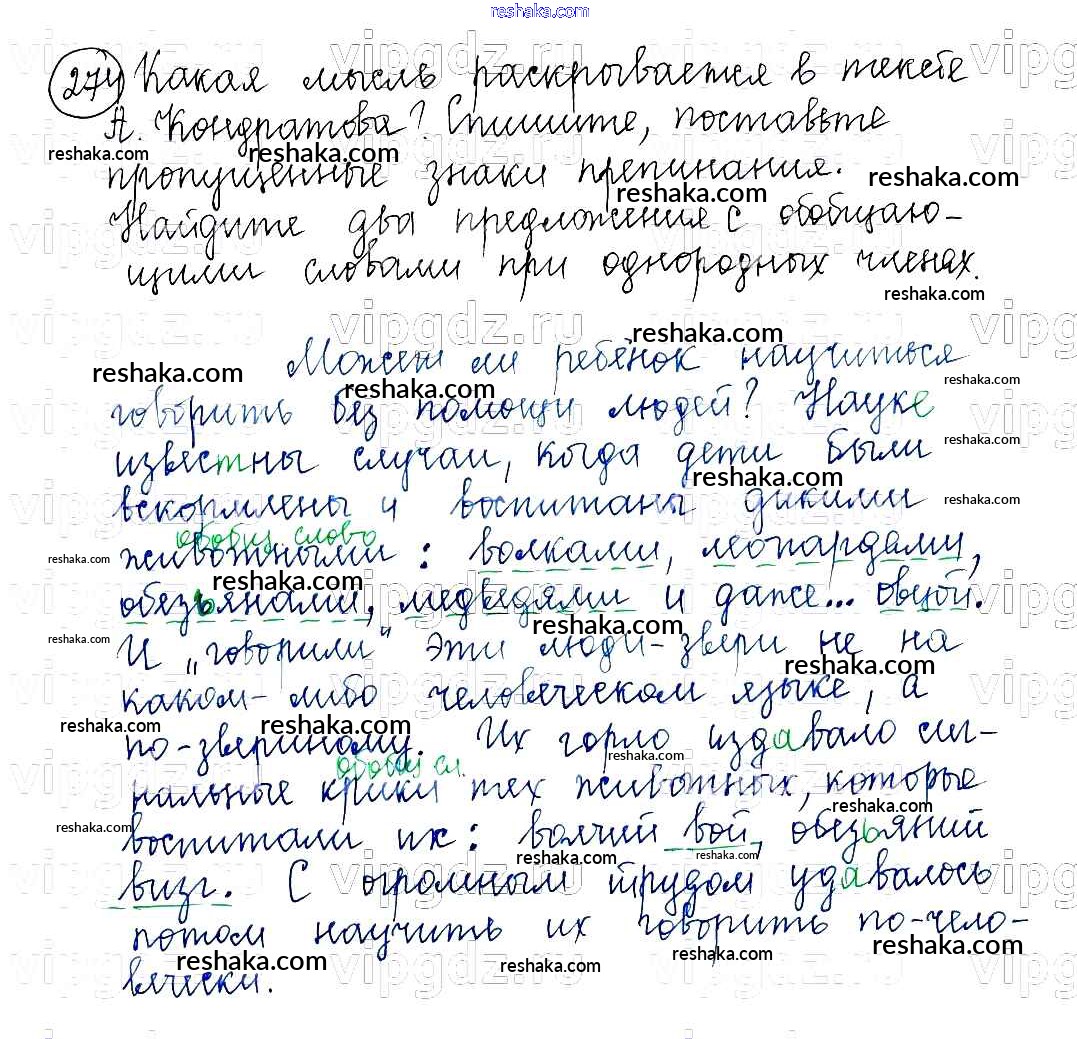 reshaka.com
274 Какая мысль раскрывается в тексте
А. Кондратова? Спишите, поставьте
пропущенные знаки препинания.
Найдите два предложения с обобщаю-
щими словами при однородных членах.
Может ли ребёнок научиться
говорить без помощи людей? Науке
известны случаи, когда дети были
вскормлены и воспитаны дикими
обобщ. слово
животными: волками, леопардами,
обезьянами, медведями и даже... овцой.
И „говорили" эти люди-звери не на
каком-либо человеческом языке, а
по-звериному. Их горло издавало сиг-
обобщ сл.
нальные крики тех животных, которые
воспитали их: волчий вой, обезьяний
визг. С огромным трудом удавалось
потом научить их говорить по-чело-
вечески.